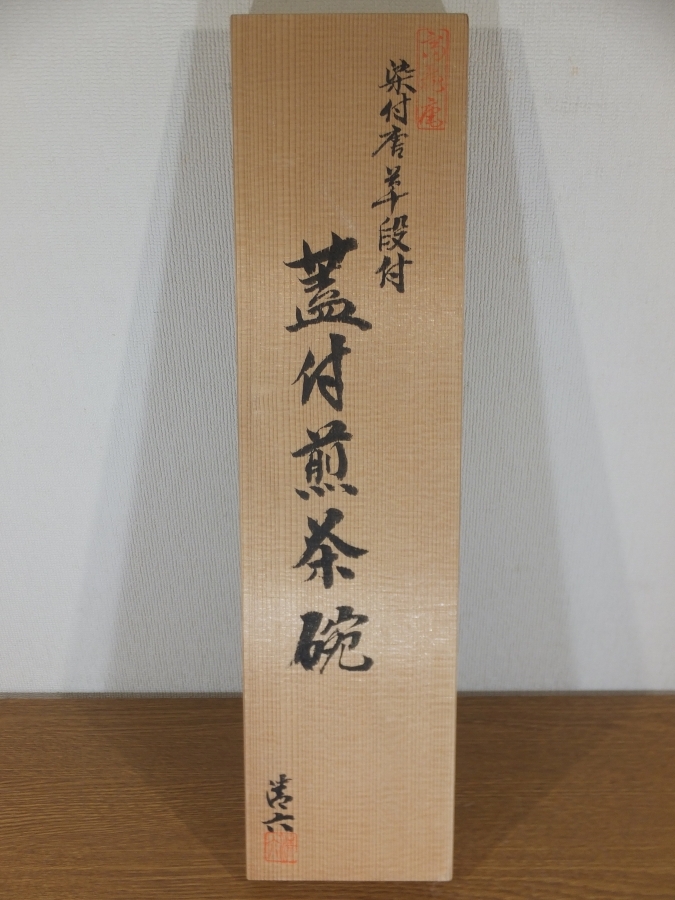 染付唐草段付
蓋付煎茶碗
清六